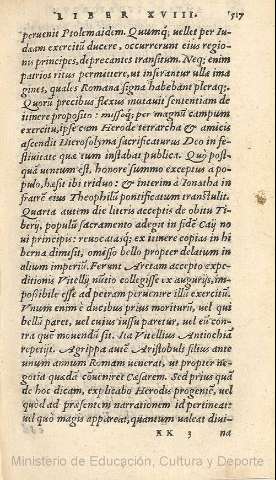 LIBER XVIII. 517
peruenit Ptolemaidem. Quumq; uellet per Iu-
dæam exercitū ducere, occurrerunt eius regio-
nis principes, deprecantes transitum. Neq; enim
patrios ritus permittere, ut inferantur ullæ ima
gines, quales Romana signa habebant pleraq;.
Quorū precibus flexus mutauit sententiam de
itinere proposito: missoq; per magnū campum
exercitu, ipse cum Herode tetrarcha & amicis
ascendit Hierosolyma sacrificaturus Deo in fe-
stiuitate quæ tum instabat publica. Quò post-
quā uentum est, honore summo exceptus a po-
pulo, hæsit ibi triduo: & interim à Ionatha in
fratrē eius Theophilū pontificatum transtulit.
Quarta autem die literis acceptis de obitu Ti-
berij, populū sacramento adegit in fidē Caij no
ui principis: reuocatisq; ex itinere copias in hi
berna dimisit, omisso bello propter delatum in
alium imperiū. Ferunt Aretam accepto expe-
ditionis Vitellij nūtio collegisse ex augurijs, im-
poßibile esse ad petram peruenire illū exercitū.
Vnum enim è ducibus prius moriturū, uel qui
bellū paret, uel cuius iussu paretur, uel eū con-
tra quē mouendū sit. Ita Vitellius Antiochiā
repetijt. Agrippa autē Aristobuli filius ante
unum annum Romam uenerat, ut propter ne-
gotia quædā cōueniret Cæsarem. Sed prius quā
de hoc dicam, explicabo Herodis progeniē, uel
quòd ad præsentem narrationem id pertineat:
uel quò magis appareat, quantum ualeat diui-
KK 3 na
Ministerio de Educación, Cultura y Deporte